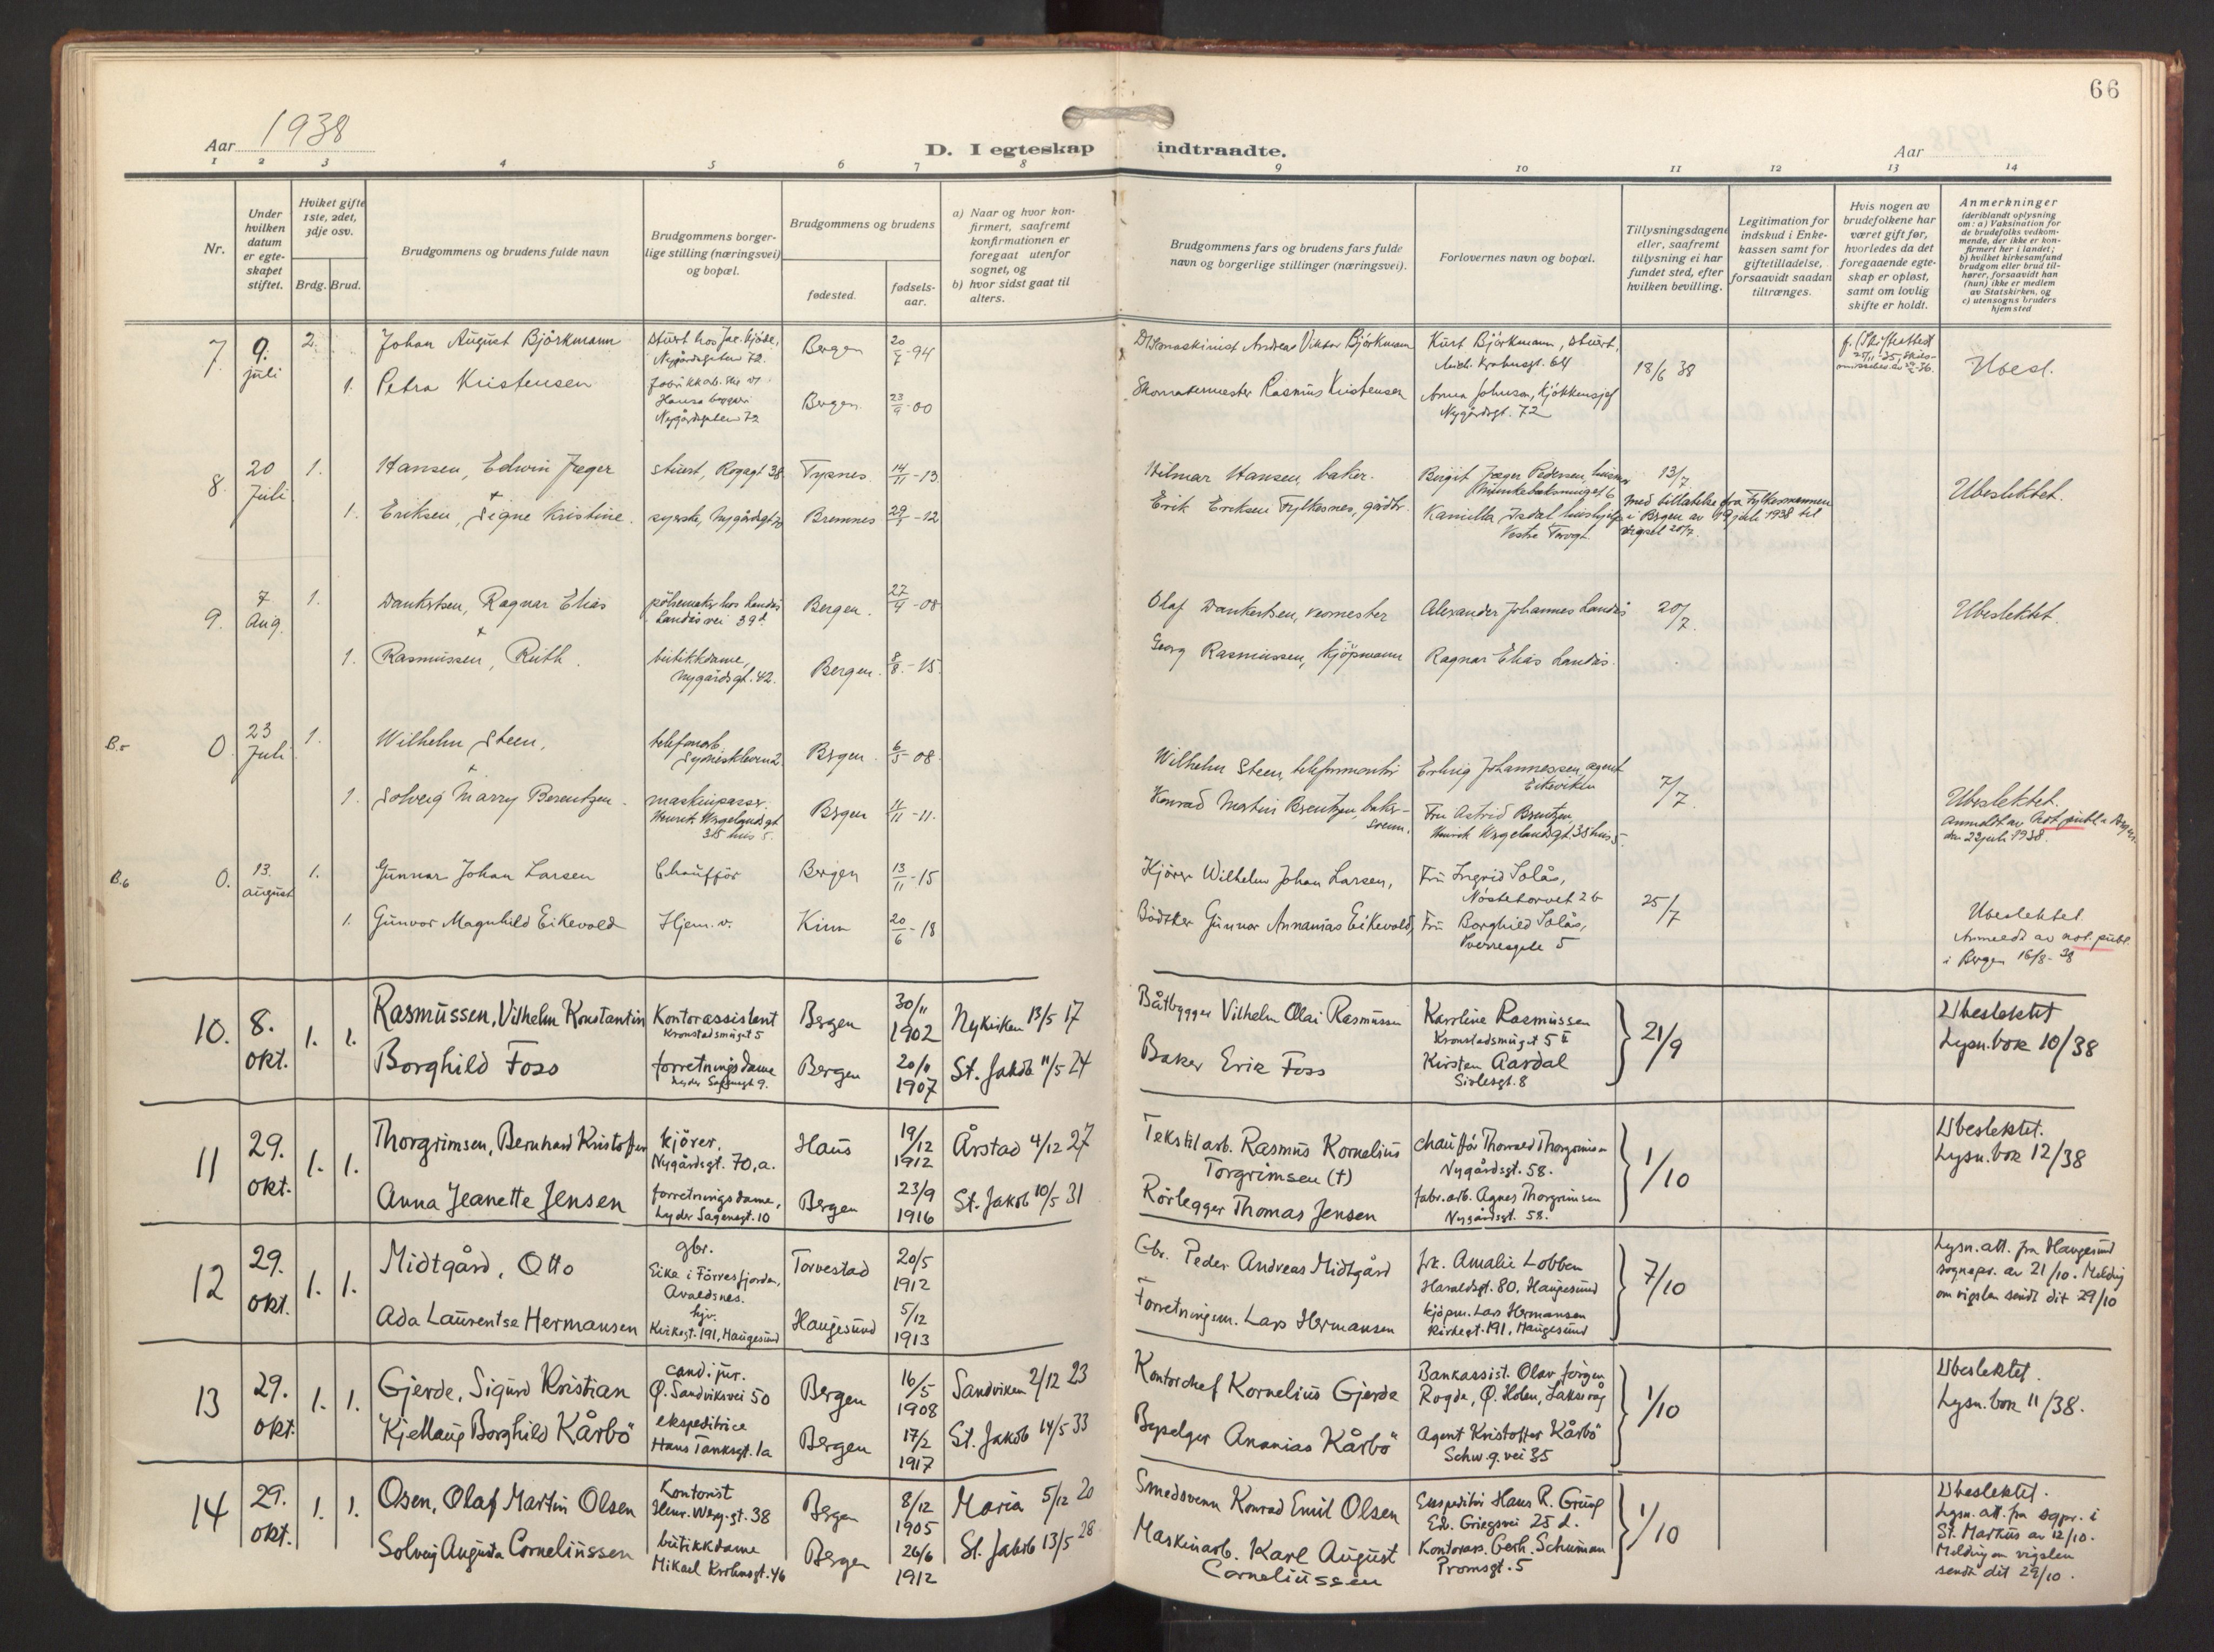 66
Aar 1938
D. I egteskap indtraadte.
Aar
1 2 3 4 5 6 7 8 9 10 11 12 13 14
Nr.
Under hvilken datum er egteskapet stiftet.
Hvilket gifte 1ste, 2det, 3dje osv.
Brdg. Brud.
Brudgommens og brudens fulde navn
Brudgommens borgerlige stilling (næringsvei) og bopæl.
Brudgommens og brudens
fødested.
fødselsaar.
a) Naar og hvor konfirmert, saafremt konfirmationen er foregaat utenfor sognet, og
b) hvor sidst gaat til alters.
Brudgommens fars og brudens fars fulde navn og borgerlige stillinger (næringsvei).
Forlovernes navn og bopæl.
Tillysningsdagene eller, saafremt tillysning ei har fundet sted, efter hvilken bevilling.
Legitimation for indskud i Enkekassen samt for giftetilladelse, forsaavidt saadan tiltrænges.
Hvis nogen av brudefolkene har været gift før, hvorledes da det foregaaende egteskap er opløst, samt om lovlig skifte er holdt.
Anmerkninger
(deriblandt oplysning om: a) Vaksination for de brudefolks vedkommende, der ikke er konfirmert her i landet; b) hvilket kirkesamfund brudgom eller brud tilhører, forsaavidt han (hun) ikke er medlem av Statskirken, og c) utensogns bruders hjemsted
7. 9. juli 2. Johan August Björkmann
Nygårdsgaten 72. Bergen 94
Andreas Viktor Björkmann
Kurt Björkmann, stuert,
Mich. Krohnsgt. 64
18/6 38
Ubesl.
1. Petra Kristensen
Hansa bryggeri
Nygårdsgaten 72
Bergen 23/9-00
Skomakermester Rasmus Kristensen
Anna Johnsen, Kjökkensjef
Nygårdsgt. 72
8. 20 Juli 1. Hansen, Edwin Jæger
stuert, 38. Tysnes 14/11-13.
Hilmar Hansen, baker.
Birgit Jæger Pedersen,
Munkebotsmuget 6
13/7.
Ubeslektet.
1. Eriksen, Signe Kristine.
syerske, Nygårdsgt Bremnes 12
Erik Eriksen Fylkesnes, gårdbr.
Kamilla
Vestre Torvgt.
med tillatelse fra Fylkesmannen
i Bergen av 19 juli 1938 til
vigsel 20/7.
9. 7 Aug. 1. Dankertsen, Ragnar Elias
pölsemaker hos Landås
Landåsvei 39d. Bergen. 08
Olaf Dankertsen,
Alexander Johannes Landås
20/7.
Ubeslektet.
1. Rasmussen, Ruth.
butikkdame,
Nygårdsgt. 42. Bergen. 8/8.-15.
Georg Rasmussen, kjöpmann
Ragnar Elias Landås.
B.5 0. 23 Juli 1. Wilhelm Steen,
telefonarb.
Bergen. 6/5 08.
Wilhelm Steen, telefonmontör
Erling Johannessen, agent
Eikeviken
7/7.
1. Solveig Marry Berentzen.
maskinpasser.
Henrik Wergelandsgt.
hus 5.
Bergen 11.
Konrad Martin Berentzen, bakersvenn.
Fru Astrid Berentzen,
Henrik Wergelandsgt. 38 hus 5.
Ubeslektet.
Anmeldt av not. publ. i Bergen
den 23 juli 1938.
B.6 0. 13. august 1. Gunnar Johan Larsen
Chauffør Bergen 13/11-15
Kjörer Wilhelm Johan Larsen,
Fru Ingrid Solås,
Nöstetorvet 2b
25/7
1. Gunvor Magnhild Eikevold
Hjem. v. Kinn 20/6-18
Bödtker Gunnar Annanias Eikevold,
Fru Borghild Solås,
5
Ubeslektet.
Anmeldt av not. publ.
i Bergen 16/8-38
10. 8. okt. 1. 1. Rasmussen, Vilhelm Konstantin
Kontorassistent
Kronstadsmuget 5
Bergen 30/11 1902 Nykirken 13/5 17
Båtbygger Vilhelm Olai Rasmussen
Karoline Rasmussen
Kronstadsmuget 5 II
21/9
Ubeslektet
Lysn.bok 10/38
Borghild Foss
forretningsdame
Lyder Sagensgt 9.
Bergen 20/11 1907 St. Jakob 11/5 24
Baker Erik Foss
Kirsten Aardal
Sivlesgt. 8
11 29. okt. 1. 1. Thorgrimsen, Bernhard Kristoffer
kjörer,
Nygårdsgt. 70,a.
Haus 19/12 1912 Årstad 4/12 27
Tekstilarb. Rasmus Kornelius
Torgrimsen (†)
chauffør Thorvald Thorgrimsen
Nygårdsgt. 58.
1/10
Ubeslektet.
Lysn.bok 12/38
Anna Jeanette Jensen
forretningsdame,
Lyder Sagensgt. 10
Bergen 23/9 1916 St. Jakob 10/5 31
Rörlegger Thomas Jensen
fabr.arb. Agnes Thorgrimsen
Nygårdsgt. 58.
12 29. okt. 1. 1. Midtgård, Otto
gbr.
Eike i Förresfjorden,
Avaldsnes.
Torvestad 20/5 1912
Gbr. Peder Andreas Midtgård
frk. Amalie Lobben
Haraldsgt. 80, Haugesund
7/10
Lysn.att. fra Haugesund
sognepr. av 21/10. Melding
om vigslen sendt dit 29/10
Ada Laurentse Hermansen
hjv.
Kirkegt. 191, Haugesund
Haugesund 5/12 1913
Forretningsm. Lars Hermansen
kjöpm. Lars Hermansen
Kirkegt. 191, Haugesund
13 29. okt. 1. 1. Gjerde, Sigurd Kristian
cand. jur.
Ø. Sandviksvei 50
Bergen 16/5 1908 Sandviken 2/12 23
Kontorchef Kornelius Gjerde
Bankassist. Olav Jörgen
Rogde, Ø. Holen, Laksevåg
1/10
Ubeslektet.
Lysn.bok 11/38.
Kjellaug Borghild Kårbö
ekspeditrice
Hans Tanksgt. 1a
Bergen 17/2 1917 St. Jakob 14/5 33
Bypselger Ananias Kårbö
Agent Kristoffer Kårbö
Schw.g. vei 35
14 29. okt. 1. 1. Osen, Olaf Martin Olsen
Kontorist
Henr. Werg.gt. 38
Bergen 8/12 1905 Maria 5/12 20
Smedsvenn Konrad Emil Olsen
Ekspeditör Hans R. Grung
Edv. Griegsvei 25 d.
1/10
Ubeslektet.
Lysn.att. fra sgpr. i
St. Markus av 12/10.
Melding om vigslen
sendt dit 29/10.
Solveig Augusta Corneliussen
butikkdame
Mikael Krohnsgt. 46
Bergen 26/6 1912 St. Jakob 13/5 28
Maskinarb. Karl August
Corneliussen
Kontorass. Gerh. Schuman
Promsgt. 5